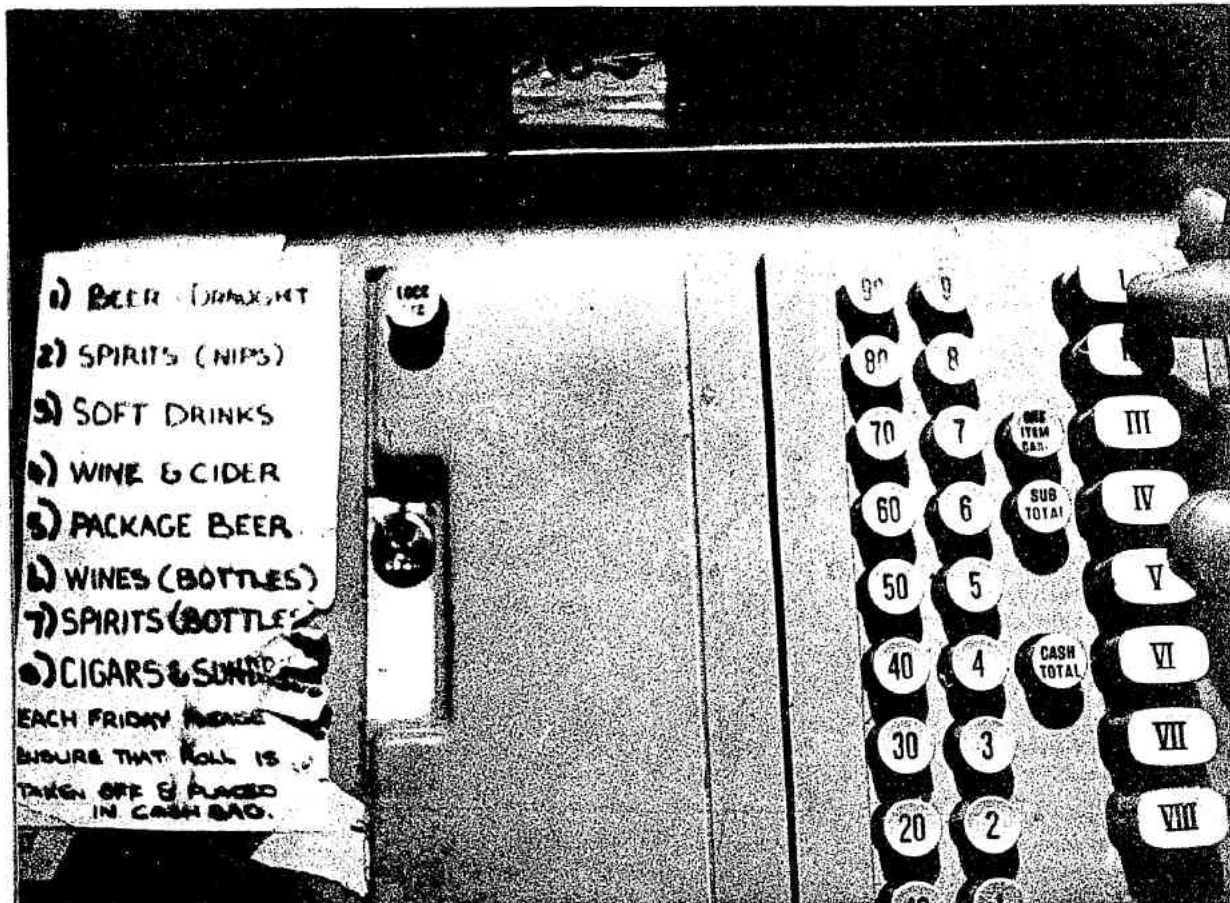 1) BEER DRAUGHT
2) SPIRITS (NIPS)
3) SOFT DRINKS
4) WINE & CIDER
5) PACKAGE BEER
6) WINES (BOTTLES)
7) SPIRITS (BOTTLES
8) CIGARS &
EACH FRIDAY PLEASE
ENSURE THAT ROLL IS
TAKEN OFF & PLACED
IN CASH BAG.
LOCK
90 9
80 8
70 7 ONE ITEM CAN. III
60 6 SUB TOTAL IV
50 5 V
40 4 CASH TOTAL VI
30 3 VII
20 2 VIII
1